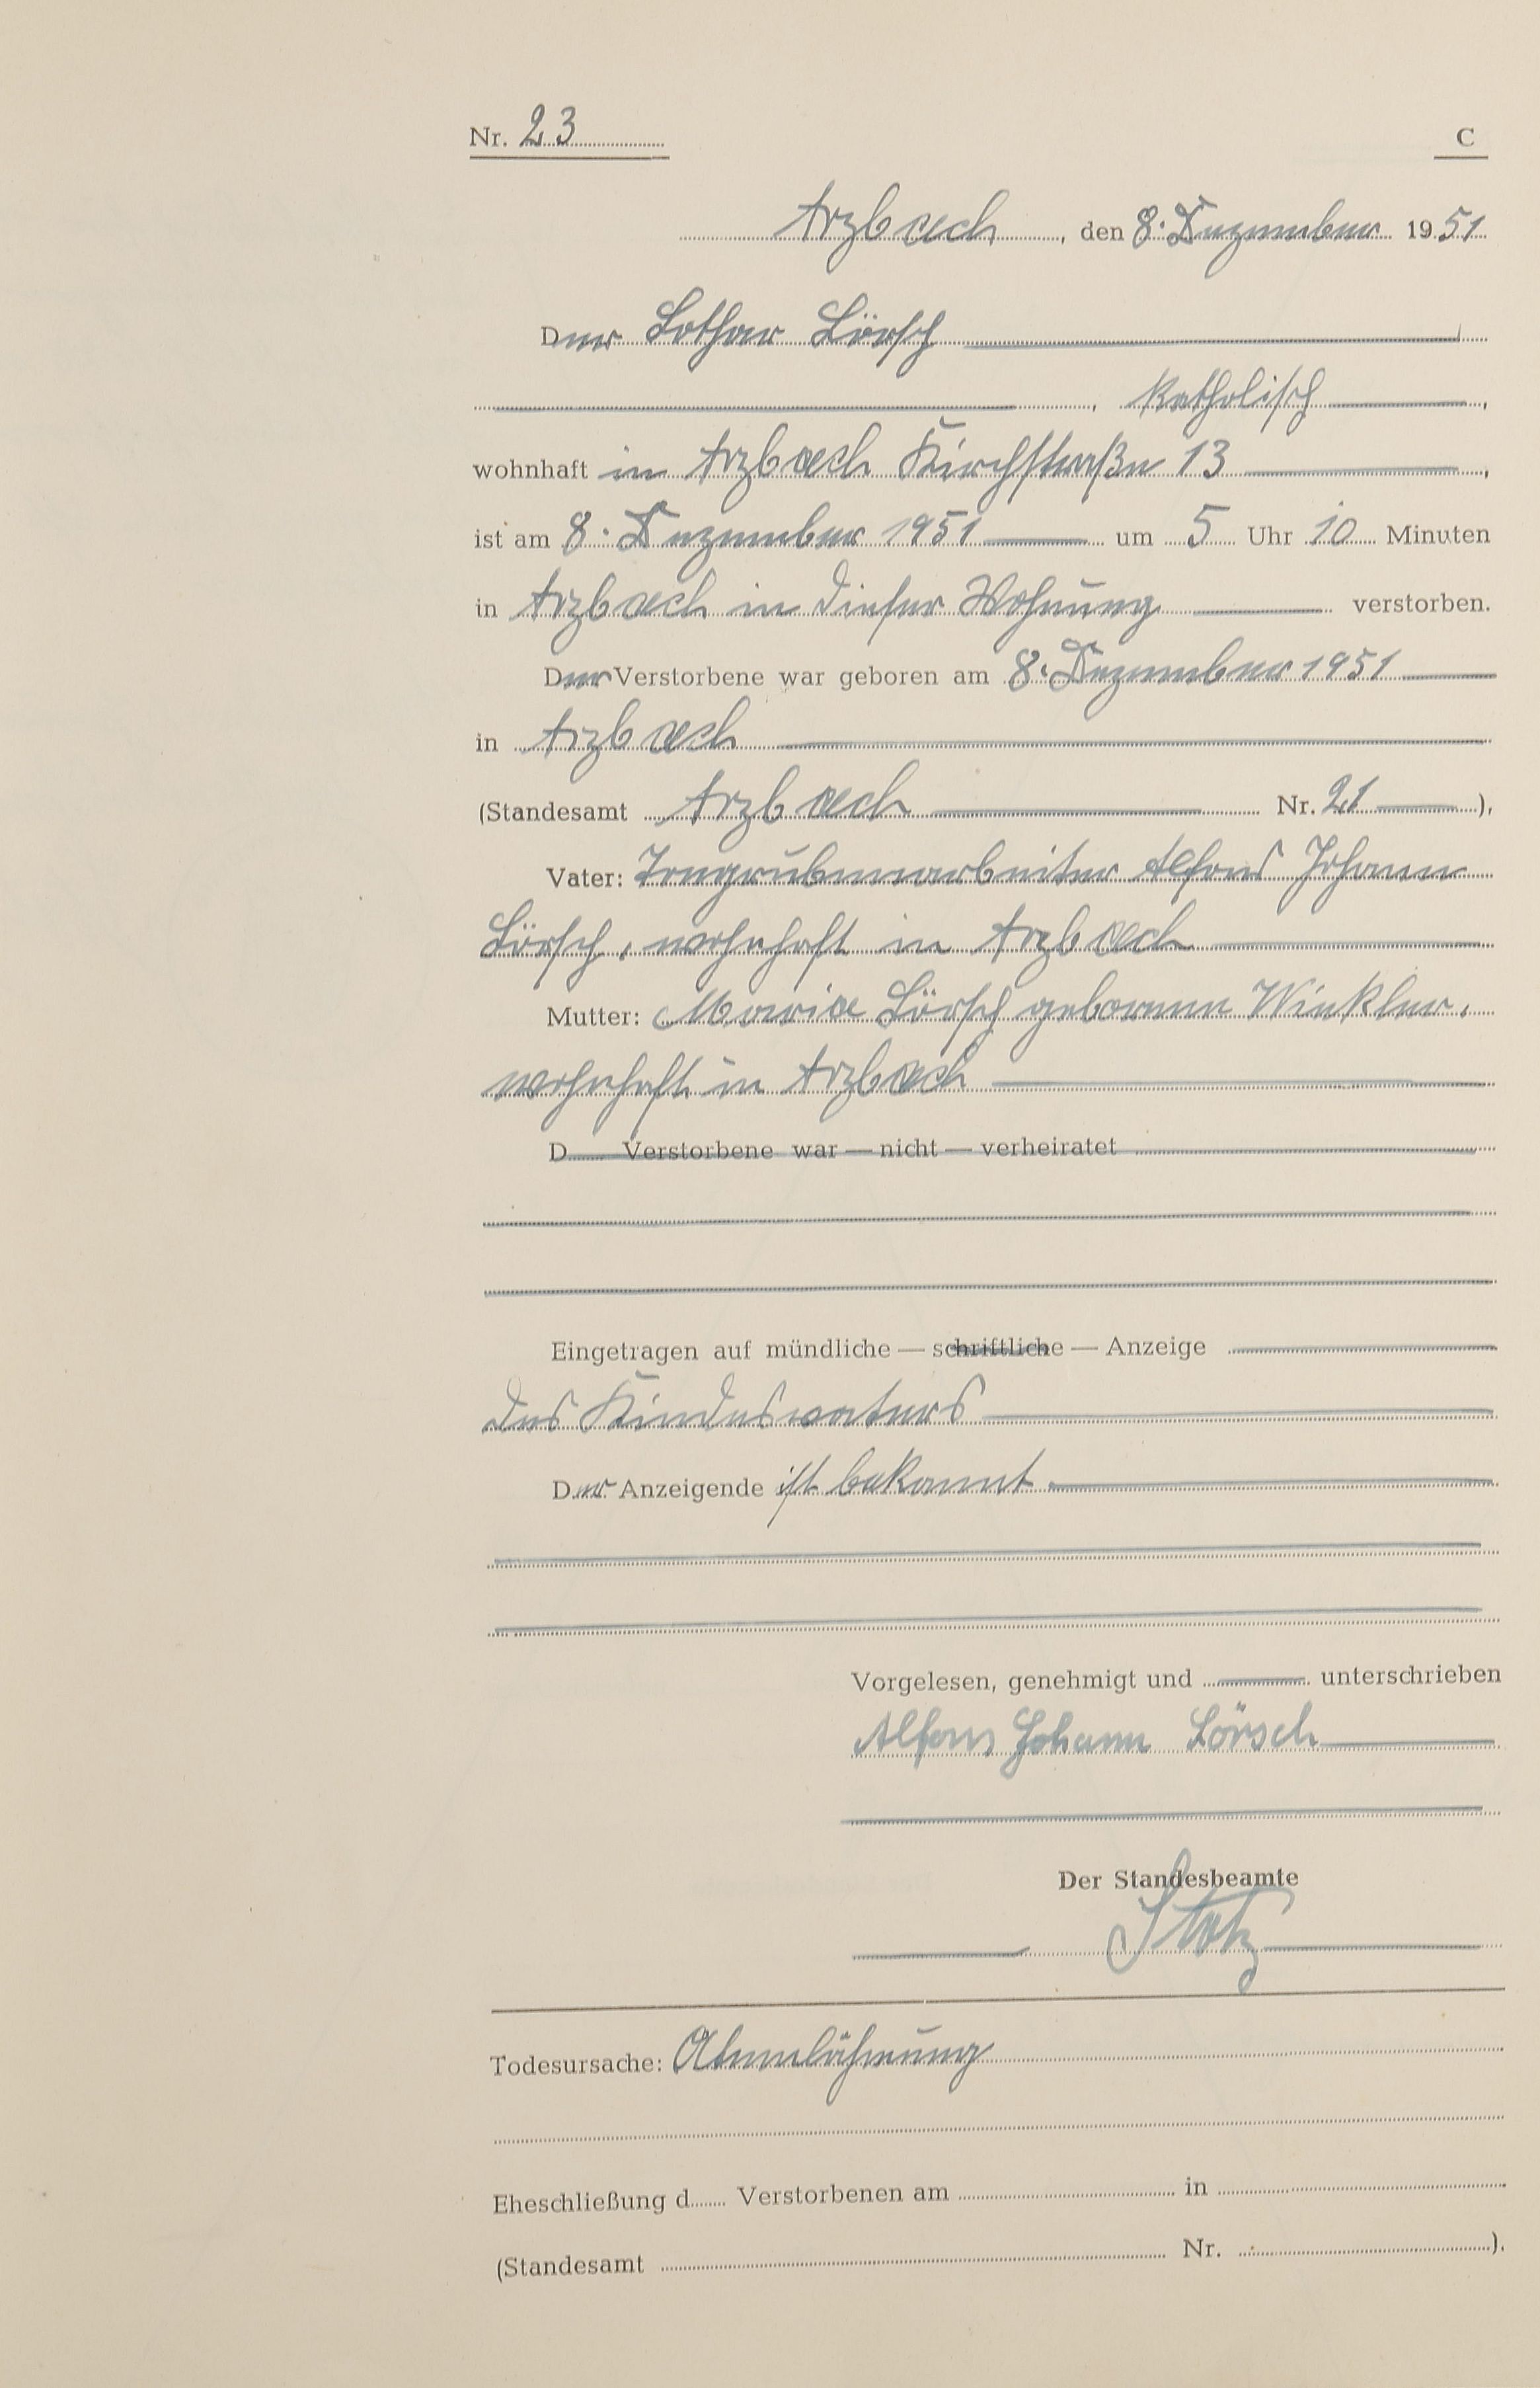 Nr. 23
C
Arzbach, den 8. Dezember 1951
Der Lothar Lörsch
, katholisch,
wohnhaft in Arzbach Kirchstraße 13,
ist am 8. Dezember 1951 um 5 Uhr 10 Minuten
in Arzbach in dieser Wohnung verstorben.
Der Verstorbene war geboren am 8. Dezember 1951
in Arzbach
(Standesamt Arzbach Nr. 21),
Vater: Tongrubenarbeiter Alfons Johann
Lörsch, wohnhaft in Arzbach
Mutter: Maria Lörsch geborene Winkler,
wohnhaft in Arzbach
D Verstorbene war — nicht — verheiratet
Eingetragen auf mündliche — schriftliche — Anzeige
des Kindesvaters
Der Anzeigende ist bekannt
Vorgelesen, genehmigt und unterschrieben
Alfons Johann Lörsch
Der Standesbeamte
Stotz
Todesursache: Atemlähmung
Eheschließung d Verstorbenen am in
(Standesamt Nr. ).